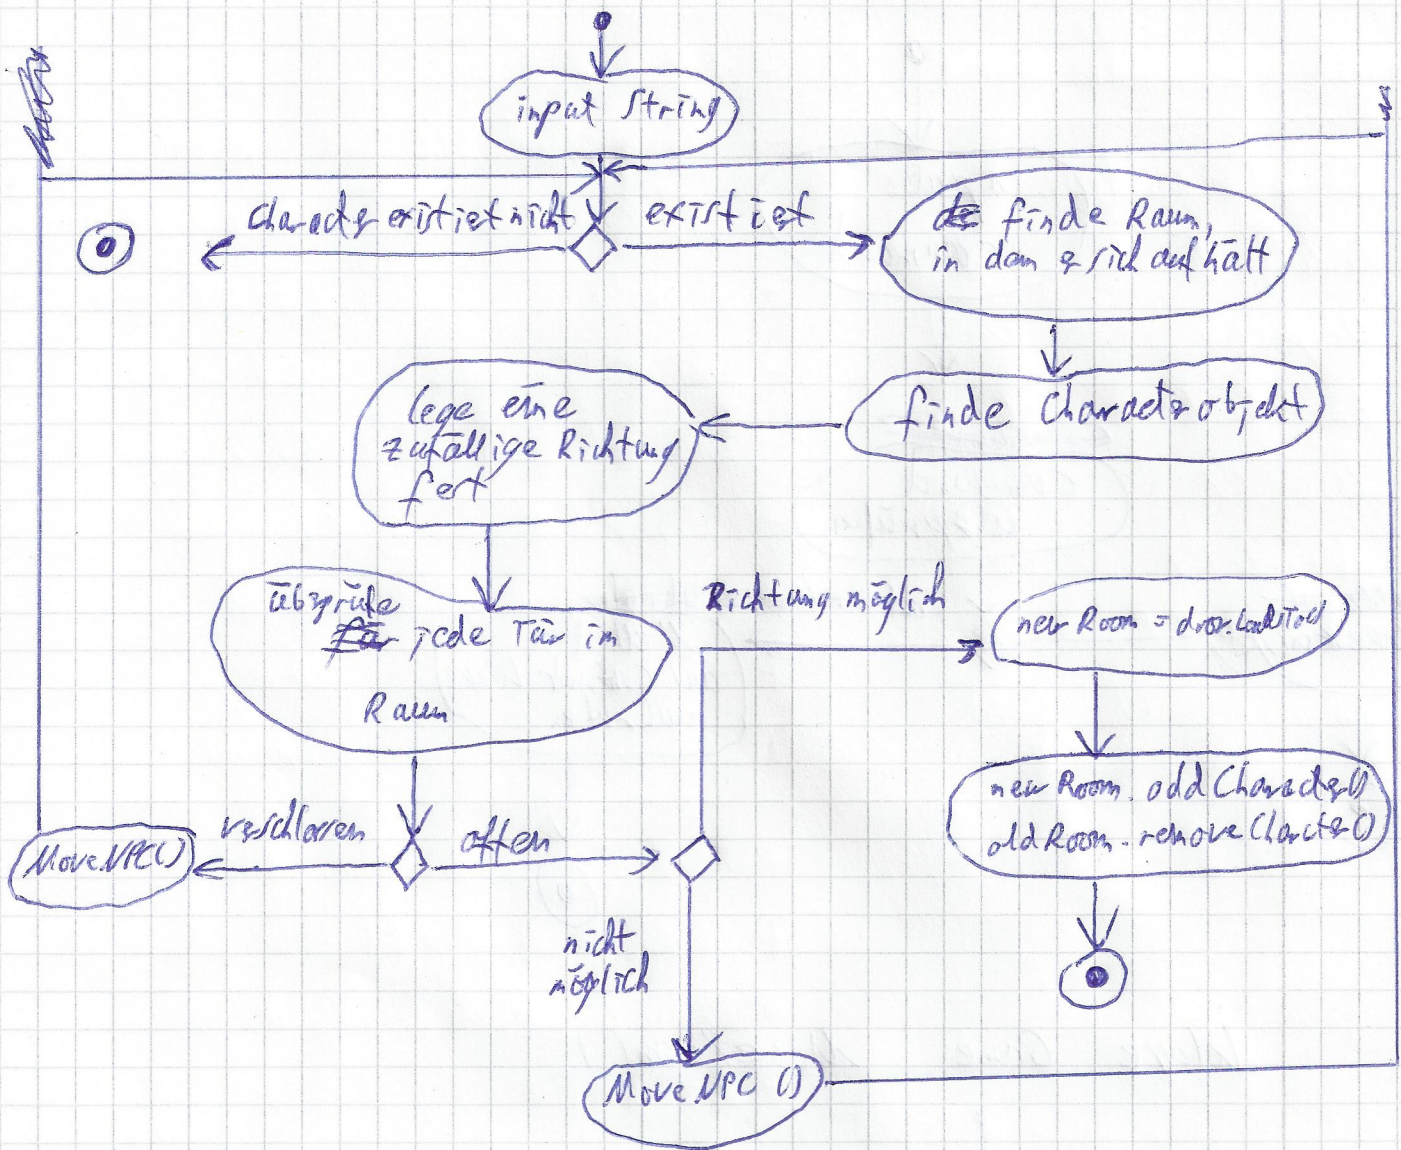 input String
Character existiet nicht
existiet
finde Raum,
in dem er sich aufhält
finde Characterobjekt
lege eine
zufällige Richtung
fest
überprüfe
für jede Tür im
Raum
Richtung möglich
newRoom = door.
newRoom.addCharacter()
oldRoom.removeCharcter()
verschlossen
offen
MoveNPC()
nicht
möglich
MoveNPC()